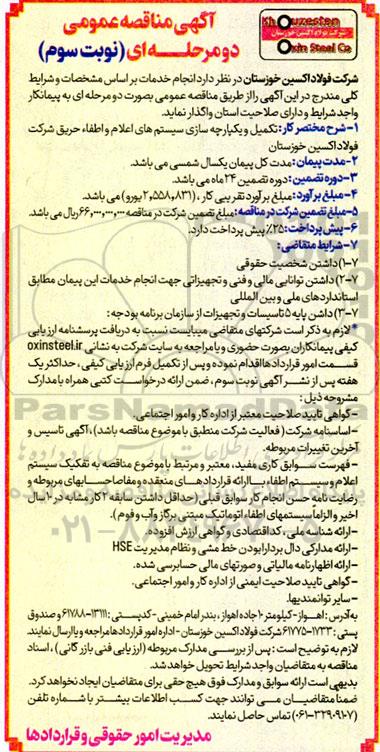 Khouzestan
Oxin Steel Co
شرکت فولاد اکسین خوزستان
آگهی مناقصه عمومی
دو مرحله ای (نوبت سوم)
شرکت فولاد اکسین خوزستان در نظر دارد انجام خدمات بر اساس مشخصات و شرایط
کلی مندرج در این آگهی را از طریق مناقصه عمومی بصورت دو مرحله ای به پیمانکار
واجد شرایط و دارای صلاحیت استان واگذار نماید.
۱-شرح مختصر کار: تکمیل و یکپارچه سازی سیستم های اعلام و اطفاء حریق شرکت
فولاد اکسین خوزستان
۲-مدت پیمان: مدت کل پیمان یکسال شمسی می باشد.
۳-دوره تضمین: دوره تضمین ۲۴ ماه می باشد.
۴-مبلغ برآورد: مبلغ برآورد تقریبی کار، (۲,۵۵۸,۰۸۳۱ یورو) می باشد.
۵-مبلغ تضمین شرکت در مناقصه: مبلغ تضمین شرکت در مناقصه ۶۶,۰۰۰,۰۰۰,۰۰۰ ریال می باشد.
۶-پیش پرداخت: ۲۵٪ پیش پرداخت دارد.
۷-شرایط متقاضی:
۷-۱) داشتن شخصیت حقوقی
۷-۲) داشتن توانایی مالی و فنی و تجهیزاتی جهت انجام خدمات این پیمان مطابق
استانداردهای ملی و بین المللی
۷-۳) داشتن پایه ۵ تاسیسات و تجهیزات از سازمان برنامه بودجه:
* لازم به ذکر است شرکتهای متقاضی میبایست نسبت به دریافت پرسشنامه ارزیابی
کیفی پیمانکاران بصورت حضوری و یا مراجعه به سایت شرکت به نشانی oxinsteel.ir
قسمت امور قراردادها اقدام نموده و پس از تکمیل فرم ارزیابی کیفی، حداکثر یک
هفته پس از نشر آگهی نوبت سوم، ضمن ارائه درخواست کتبی همراه با مدارک
مشروحه ذیل:
-گواهی تایید صلاحیت معتبر از اداره کار و امور اجتماعی.
-اساسنامه شرکت (فعالیت شرکت منطبق با موضوع مناقصه باشد)، آگهی تاسیس و
آخرین تغییرات مربوطه.
-فهرست سوابق کاری مفید، معتبر و مرتبط با موضوع مناقصه به تفکیک سیستم
اعلام و سیستم اطفاء با ارائه قراردادهای منعقده و مفاصاحسابهای مربوطه و
رضایت نامه حسن انجام کار سوابق قبلی (حداقل داشتن سابقه ۲ کار مشابه در ۱۰ سال
اخیر و الزاما سیستمهای اطفاء اتوماتیک مبتنی برگاز و آب و فوم).
-ارائه شناسه ملی، کد اقتصادی و گواهی ارزش افزوده.
-ارائه مدارکی دال بر دارا بودن خط مشی و نظام مدیریت HSE
-ارائه اظهارنامه مالیاتی و صورتهای مالی حسابرسی شده.
-گواهی تایید صلاحیت ایمنی از اداره کار و امور اجتماعی.
-سایر توانمندیها.
به آدرس: اهواز-کیلومتر ۱۰ جاده اهواز، بندر امام خمینی-کدپستی: ۱۳۱۱۱-۶۱۷۸۸ و صندوق
پستی: ۱۷۳۳-۶۱۷۷۵ شرکت فولاد اکسین خوزستان-اداره امور قراردادها مراجعه و یا ارسال نمایند.
لازم به توضیح است: پس از بررسی مدارک مربوطه (ارزیابی فنی بازرگانی)، اسناد
مناقصه به متقاضیان واجد شرایط تحویل خواهد شد.
بدیهی است ارائه سوابق و مدارک فوق هیچ حقی برای متقاضیان ایجاد نخواهد کرد.
ضمنا متقاضیان می توانند جهت کسب اطلاعات بیشتر با شماره تلفن
(۰۶۱-۳۲۹۰۹۱۰۷) تماس حاصل نمایند.
مدیریت امور حقوقی و قراردادها